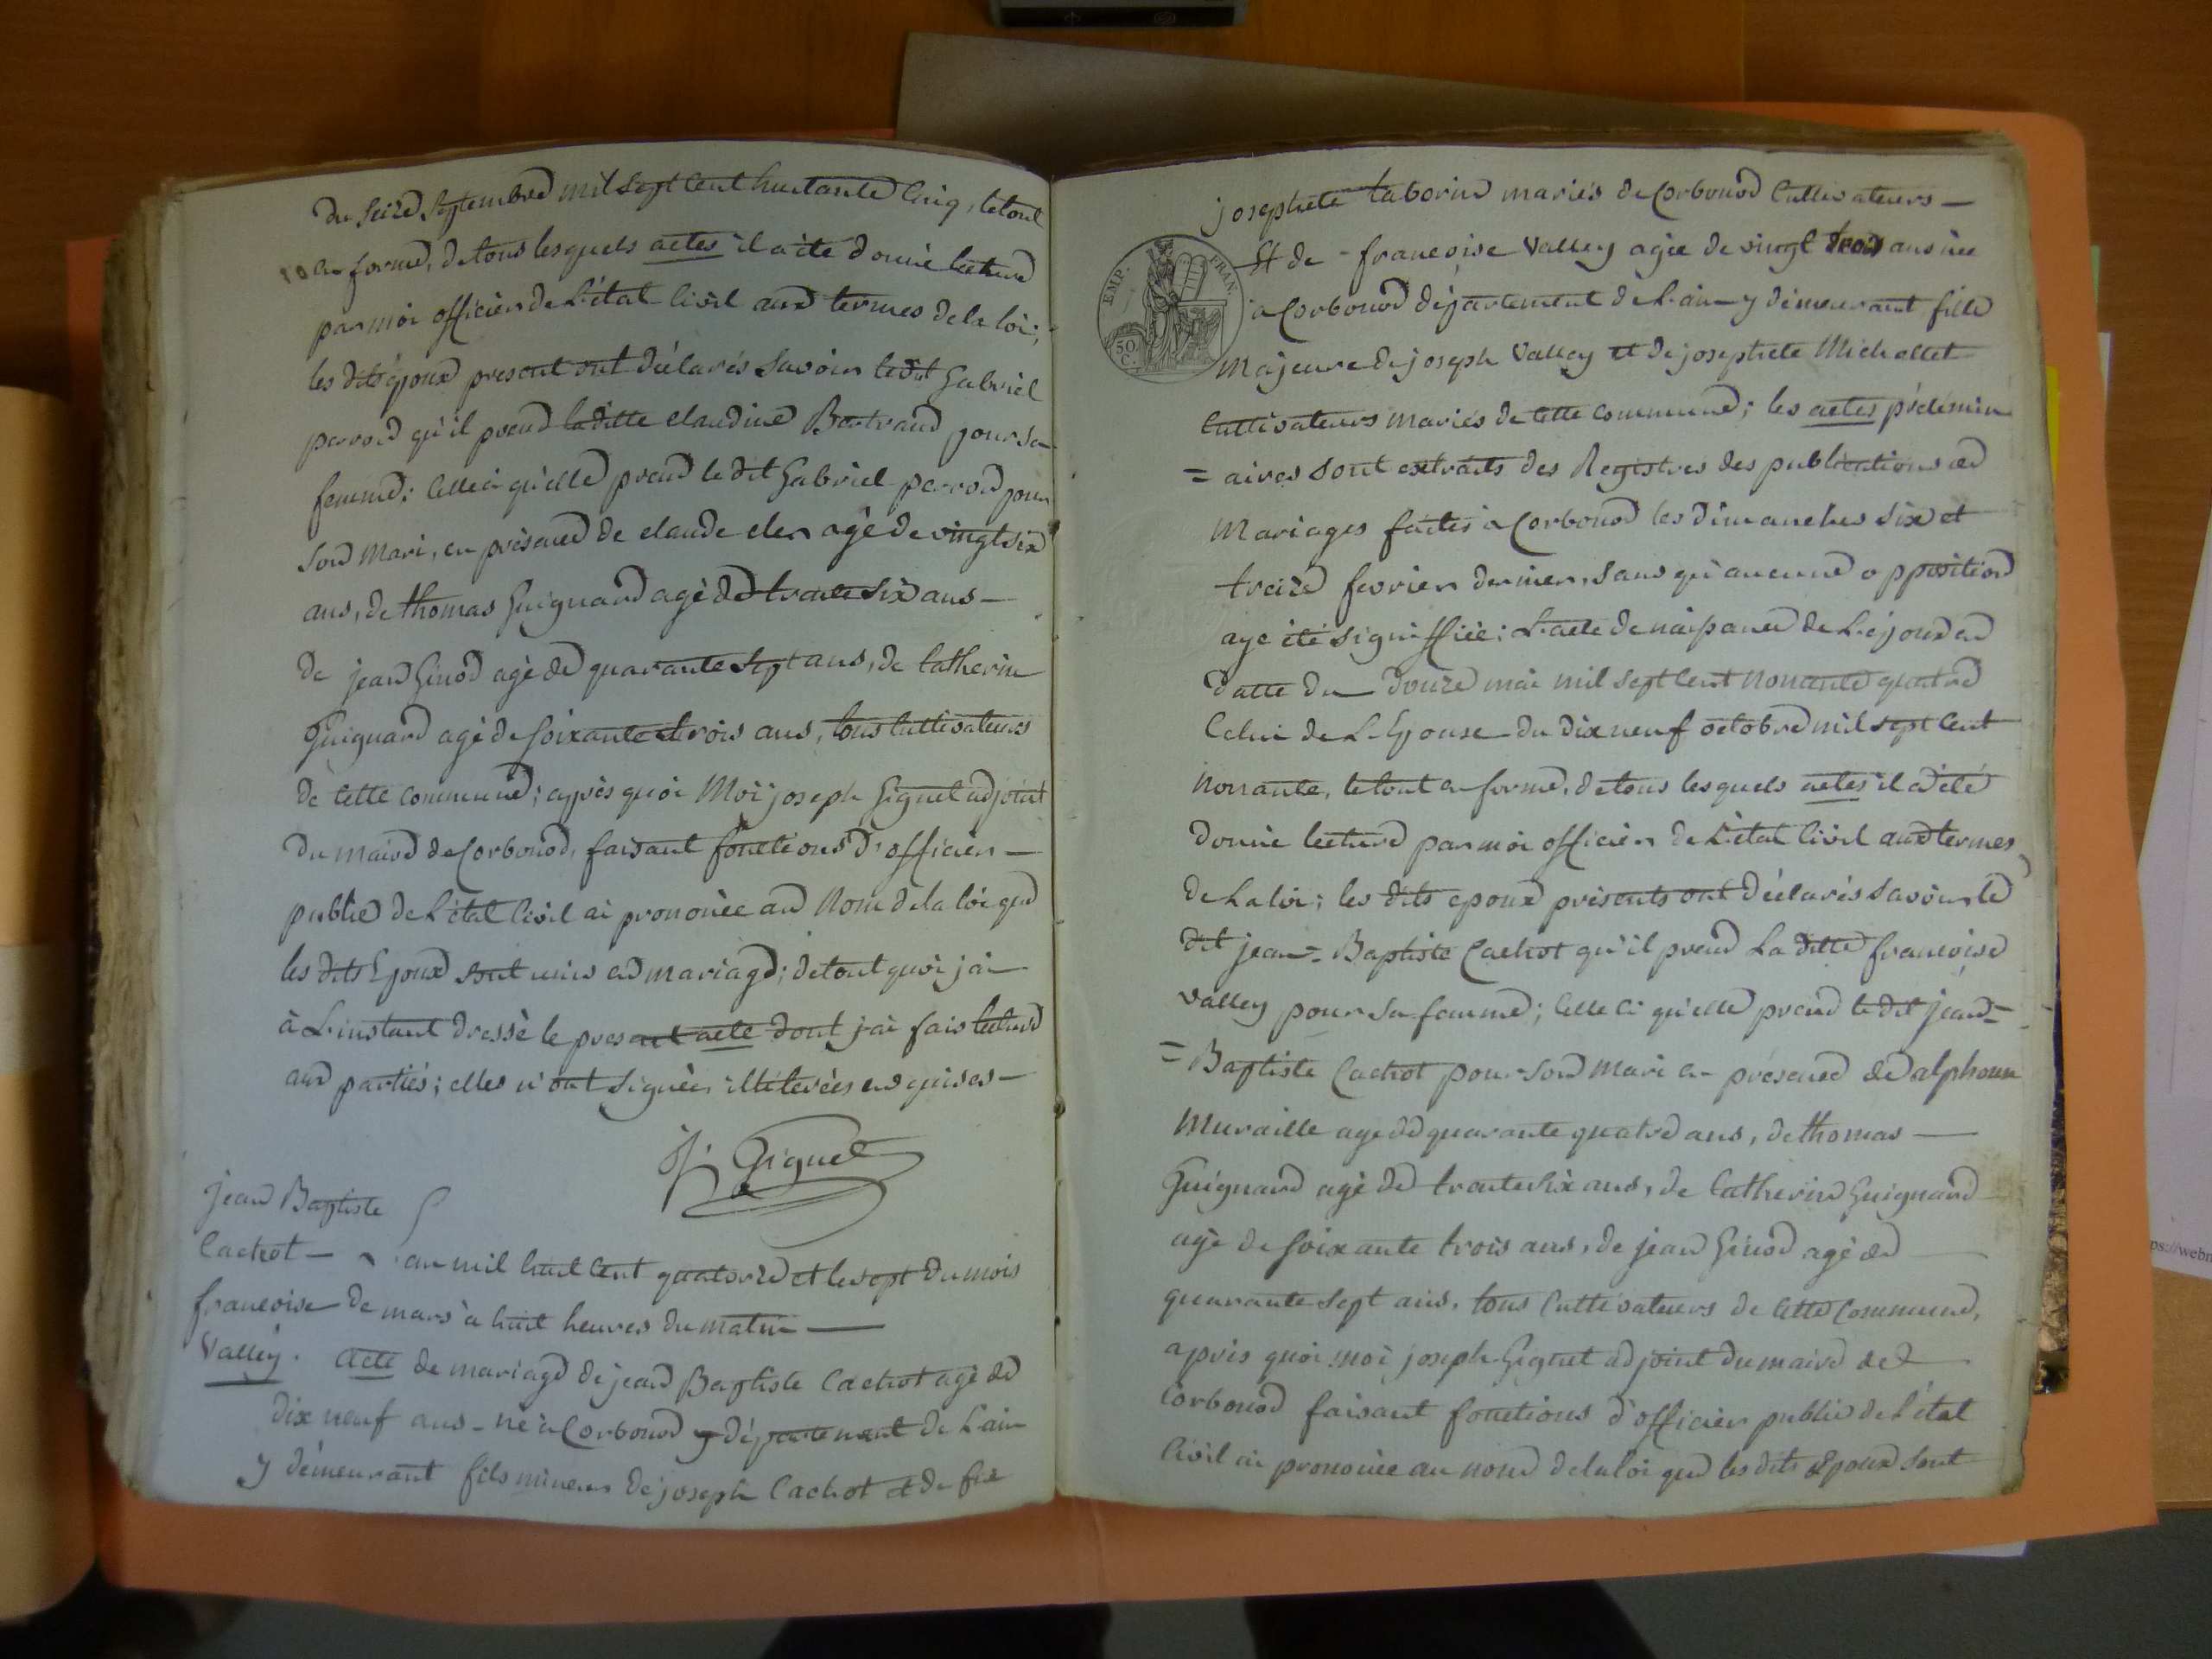 du seize septembre mil sept cent huitante cinq, le tout
en forme, de tous lesquels actes il a été donné lecture
par moi officier de L'état Civil aux termes de la loi;
les dits époux present ont déclarés Savoir le dit Gabriel
perrod qu'il prend la ditte claudine Bertrand pour sa
femme; Celle ci qu'elle prend le dit Gabriel perrod pour
son Mari, en présence de claude cler agé de vingt six
ans, de thomas Guignard agé de trente six ans —
de jean Ginod agé de quarante sept ans, de Catherin
Guignard agé de soixante trois ans, tous Cultivateurs
de Cette commune; après quoi Moi joseph Giguet adjoint
du maire de Corbonod, faisant fonctions d'officier —
public de L'état Civil ai prononcé au Nom de la loi que
les dits Epoux sont unis en mariage; de tout quoi j'ai
à L'instant dressé le present acte dont j'ai fais lecture
aux partiés; elles n'ont signées illiterées enquises —
J. Giguet
jean Baptiste
Cachot —
francoise
Valley.
an mil huit Cent quatorze et le sept du mois
de mars à huit heures du matin —
Acte de mariage de jean Baptiste Cachot agé de
dix neuf ans - né à Corbonod département de L'ain
y démeurant fils mineur de joseph Cachot et de feu
josephete taborin mariés de Corbonod Cultivateurs —
EMP. FRAN.
50 C.
Et de - francoise Valley agée de vingt trois ans née
à Corbonod département de L'ain y démeurant fille
Majeure de joseph Valley et de josephete Michallet
Cultivateurs mariés de Cette commune; les actes prélimin
= aires sont extraits des Registres des publications de
Mariages faites à Corbonod les dimanches six et
treize fevrier dernier, sans qu'aucune opposition
aye été signiffiée; L'acte de naissance de L'époux en
datte du douze mai mil sept Cent nonante quatre
Celui de L'Epouse du dix neuf octobre mil sept Cent
Nonante, le tout en forme, de tous lesquels actes il a été
donné lecture par moi officier de L'état Civil aux termes
de La loi; les dits epoux présents ont déclarés savoir le
dit jean = Baptiste Cachot qu'il prend La ditte francoise
valley pour sa femme; Celle Ci qu'elle prend le dit jean =
= Baptiste Cachot pour son Mari en présence de alphonse
Muraille agé de quarante quatre ans, de thomas —
Guignard agé de trente six ans, de Catherin Guignard
agé de soixante trois ans, de jean Ginod agé de —
quarante sept ans, tous Cultivateurs de Cette Commune,
après quoi moi joseph Giguet adjoint du maire de
Corbonod faisant fonctions d'officier public de L'état
Civil ai prononcé au nom de la loi que les dits Epoux sont